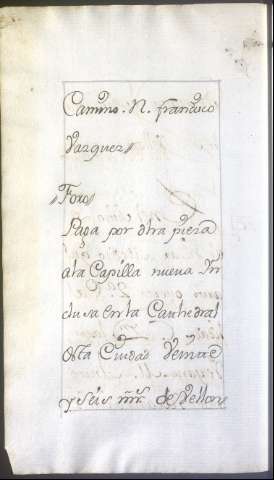 Camino. N. franc.co
Vazquez//
//Foro//
Paga por otra pieza
a la Capilla nueva In
clusa en la Cathedral
desta Ciudad Veinte
y seis mrs. de Vellon